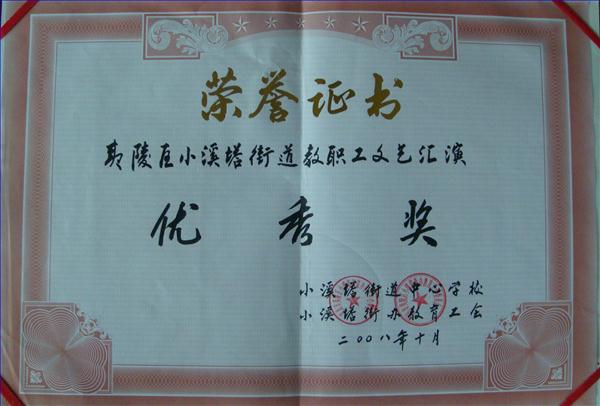 荣誉证书
夷陵区小溪塔街道教职工文艺汇演
优秀奖
小溪塔街道中心学校
小溪塔街办教育工会
二00八年十月